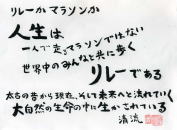 リレーかマラソンか
人生は
一人で走るマラソンではない
世界中のみんなと共に歩く
リレーである
太古の昔から現在、そして未来へと流れていく
大自然の生命の中に生かされている
清流